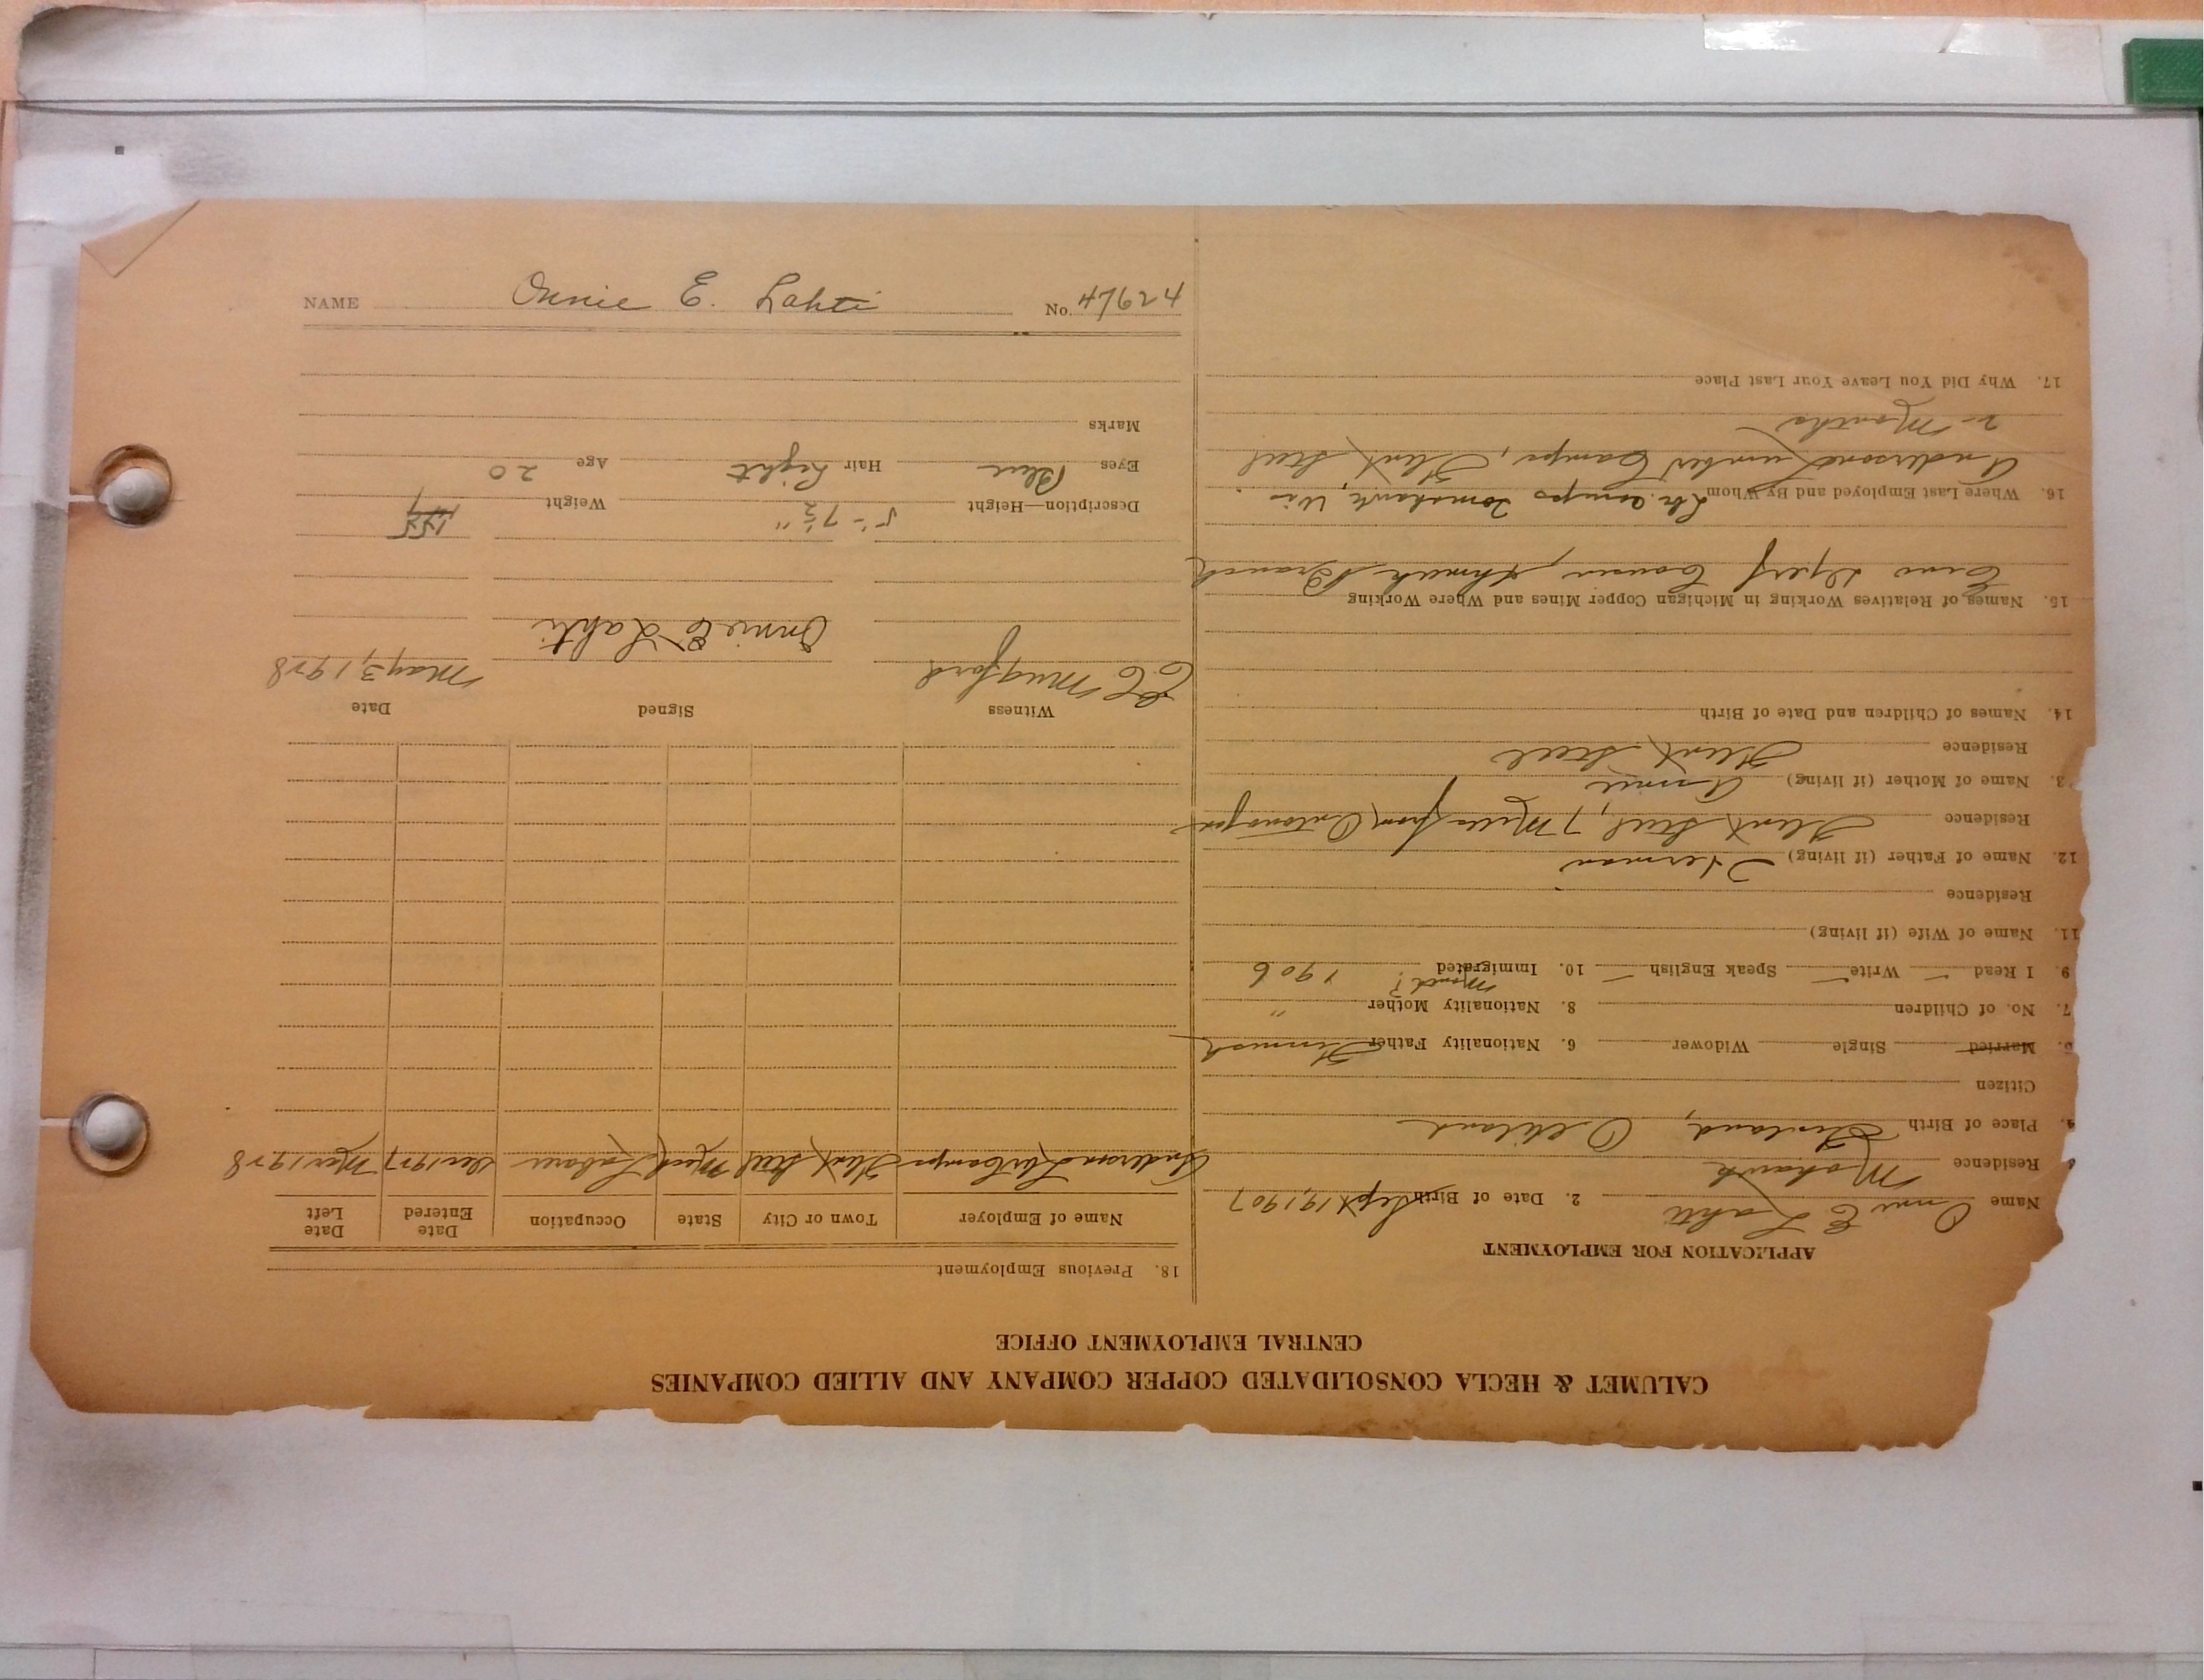 CALUMET & HECLA CONSOLIDATED COPPER COMPANY AND ALLIED COMPANIES
CENTRAL EMPLOYMENT OFFICE
APPLICATION FOR EMPLOYMENT
Name Onnie E Lahti 2. Date of Birth Sept 19, 1907
Residence Mohawk
Place of Birth Finland,
Citizen
5. Married Single Widower 6. Nationality Father Finnish
7. No. of Children 8. Nationality Mother "
9. I Read — Write — Speak English — 10. Immigrated 1906
11. Name of Wife (if living)
Residence
12. Name of Father (if living) Herman
Residence Flint Steel, 7 Miles from Ontonagon
3. Name of Mother (if living) Annie
Residence Flint Steel
14. Names of Children and Date of Birth
15. Names of Relatives Working in Michigan Copper Mines and Where Working
Eino Cousin, Ahmeek Branch
16. Where Last Employed and By Whom Lbr Camps Tomahawk, Wis
Anderson Lumber Camps, Flint Steel
2 Months
17. Why Did You Leave Your Last Place
18. Previous Employment
Name of Employer Town or City State Occupation Date Entered Date Left
Anderson Lbr Camps Flint Steel Mich Laborer Dec 1927 Mar 1928
Witness Signed Date
Mugford Onnie E Lahti May 3, 1928
Description—Height 5'-7½" Weight
Eyes Blue Hair Light Age 20
Marks
NAME Onnie E. Lahti No. 47624